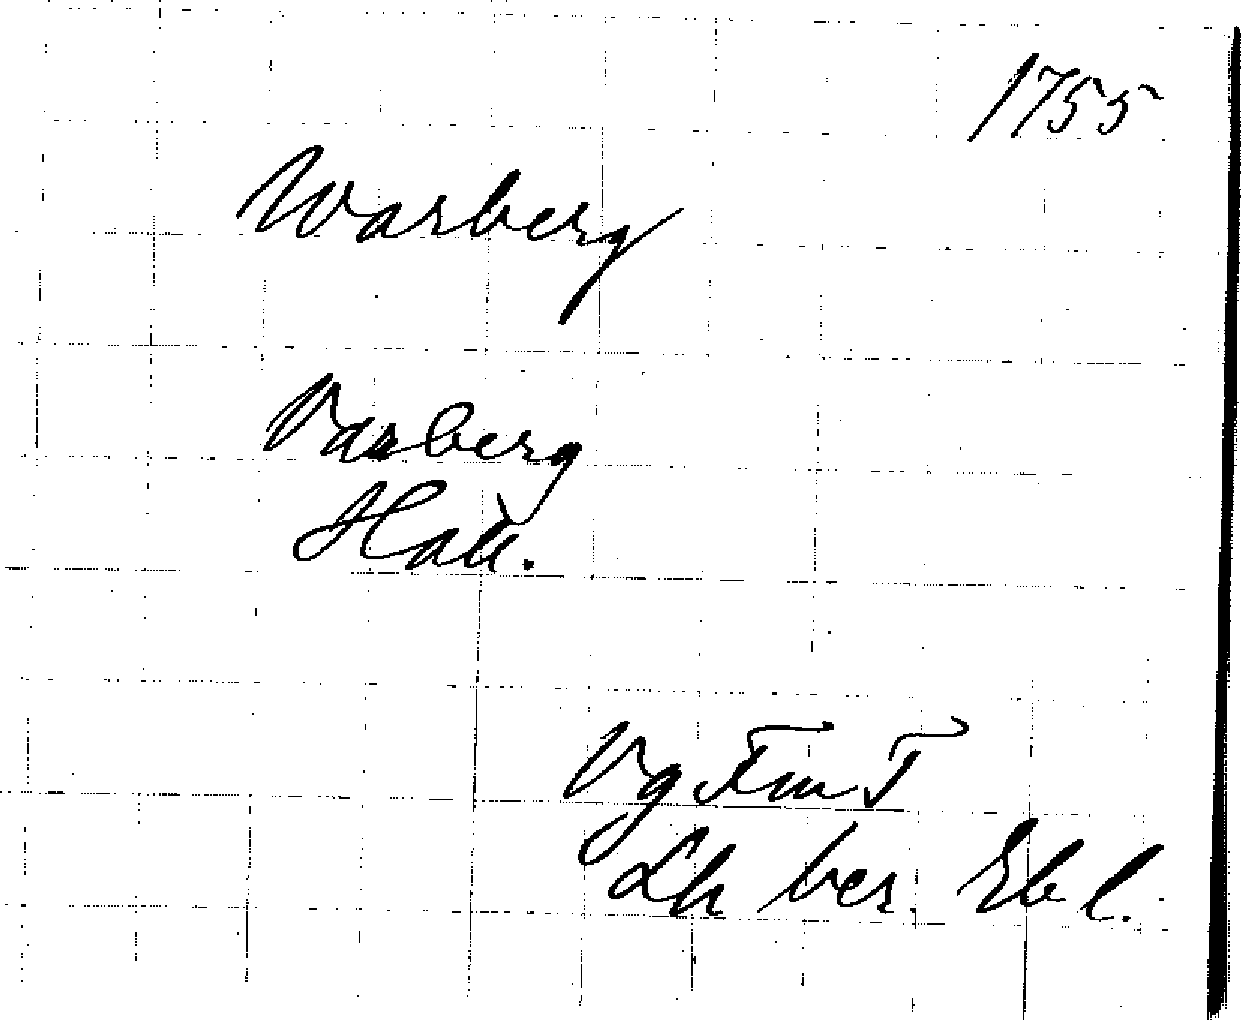 1755
Warberg
Varberg
Hall.
Vg FmT
Lh ber. Ebl.